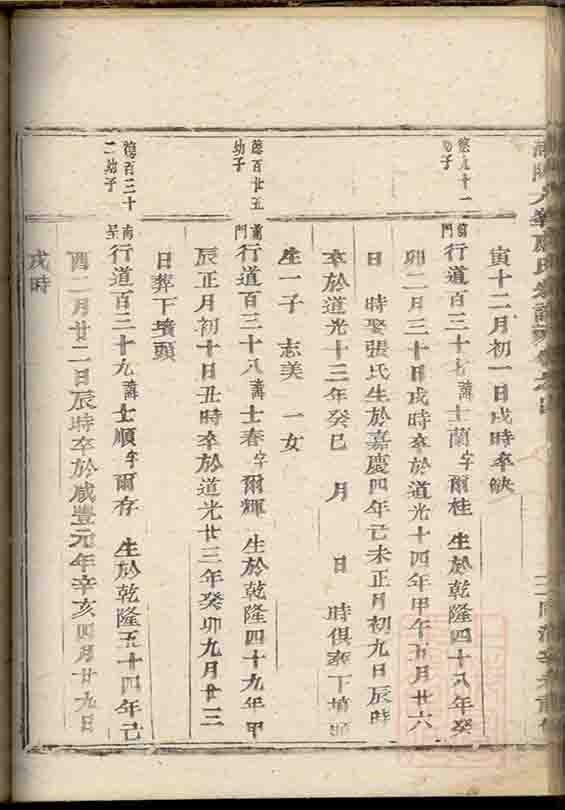 寅十二月初一日戌時卒缺
德九十一
幼子
前門行道百三十七諱士蘭字爾桂 生於乾隆四十八年癸
卯二月三十日戌時卒於道光十四年甲午五月廿六
日 時娶張氏生於嘉慶四年己未正月初九日辰時
卒於道光十三年癸巳 月 日 時俱葬下墳頭
生一子 志美 一女
德百廿五
幼子
前門行道百三十八諱士春字爾輝 生於乾隆四十九年甲
辰正月初十日丑時卒於道光廿三年癸卯九月廿三
日葬下墳頭
德百三十
二幼子
行道百三十九諱士順字爾存 生於乾隆五十四年己
酉二月廿二日辰時卒於咸豐元年辛亥四月廿九日
戌時